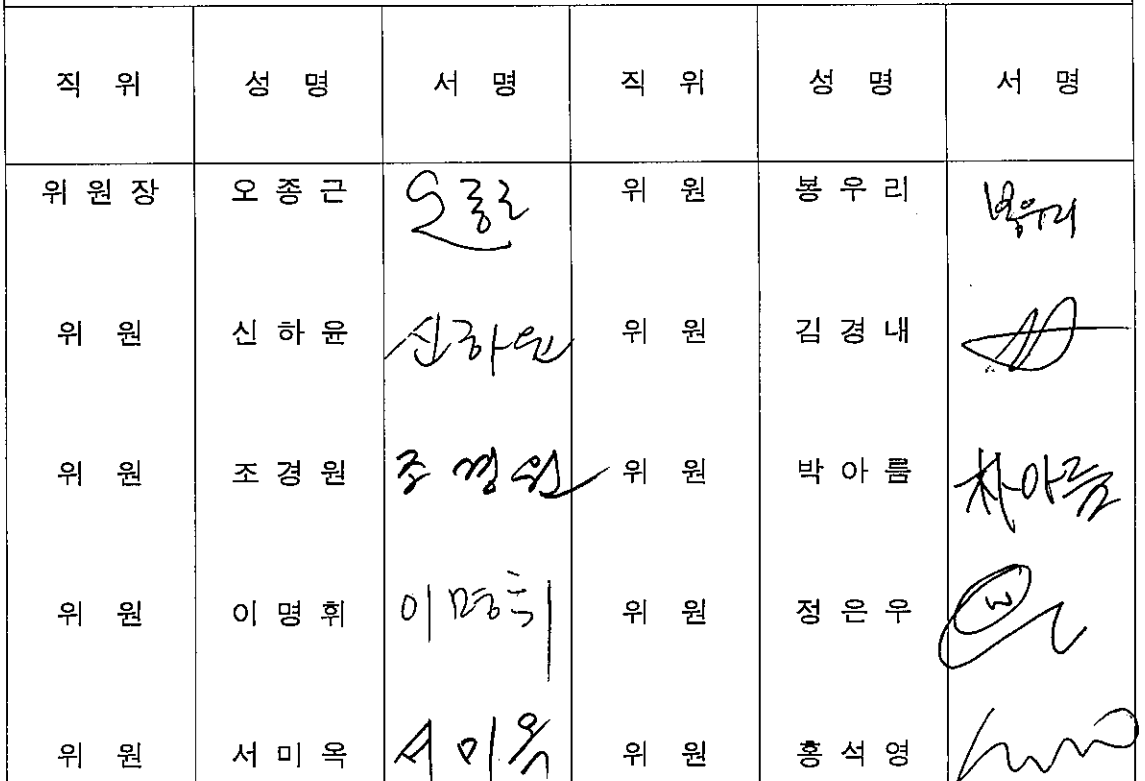 직 위 성 명 서 명 직 위 성 명 서 명
위 원 장 오 종 근 오종근 위 원 봉 우 리 봉우리
위 원 신 하 윤 신하윤 위 원 김 경 내
위 원 조 경 원 조경원 위 원 박 아 름 朴아름
위 원 이 명 휘 이명휘 위 원 정 은 우
위 원 서 미 옥 서미옥 위 원 홍 석 영